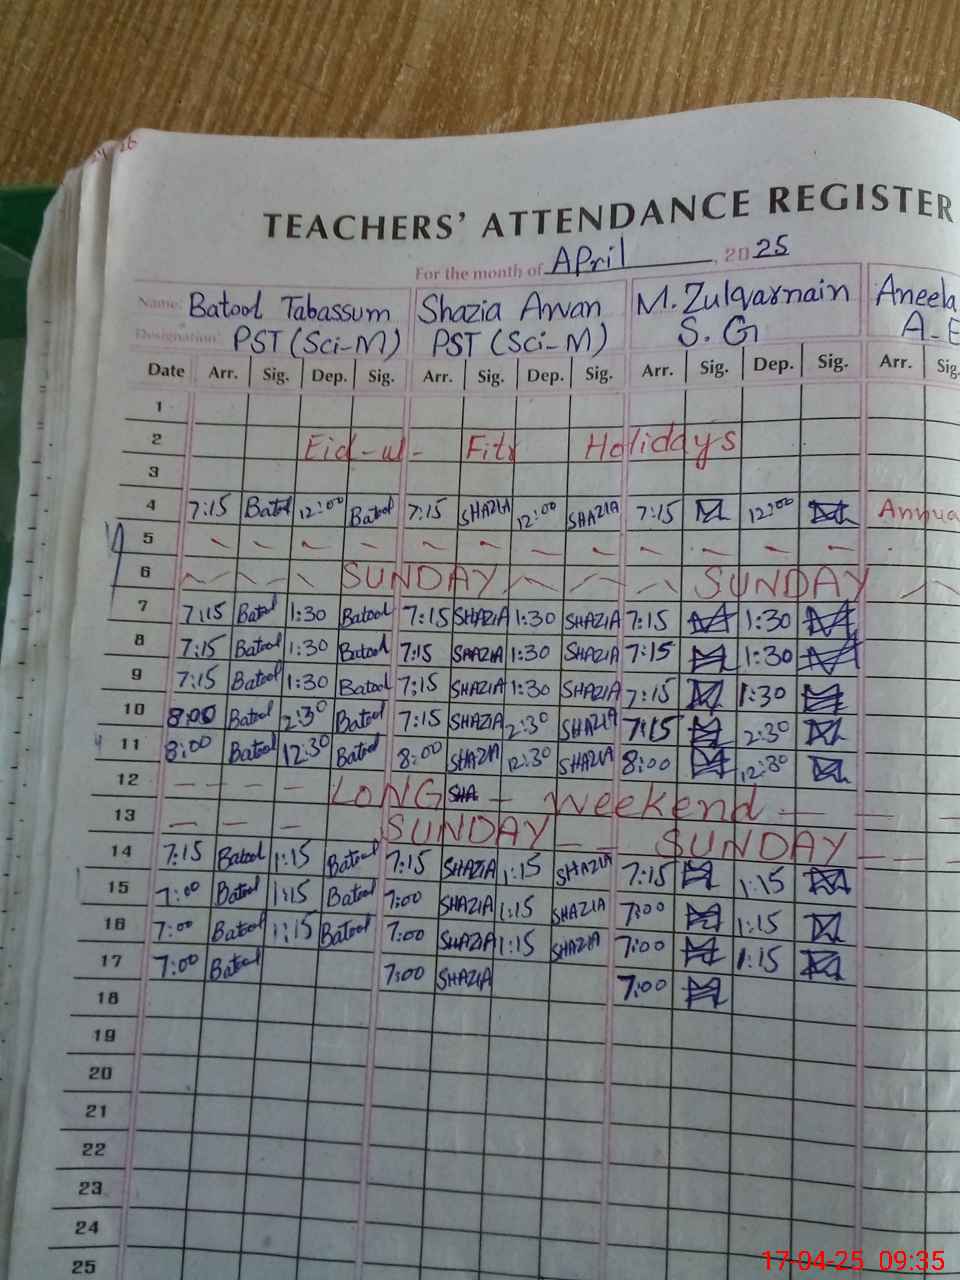 TEACHERS' ATTENDANCE REGISTER
For the month of April, 2025
Name: Batool Tabassum Shazia Awan M. Zulqarnain Aneela
Designation: PST (Sci-M) PST (Sci-M) S. G A-E
Date Arr. Sig. Dep. Sig. Arr. Sig. Dep. Sig. Arr. Sig. Dep. Sig. Arr. Sig.
1
2 Eid-ul- Fitr Holidays
3
4 7:15 Batool 12:00 Batool 7:15 SHAZIA 12:00 SHAZIA 7:15 12:00 Annua
5
6 SUNDAY SUNDAY
7 7:15 Batool 1:30 Batool 7:15 SHAZIA 1:30 SHAZIA 7:15 1:30
8 7:15 Batool 1:30 Batool 7:15 SHAZIA 1:30 SHAZIA 7:15 1:30
9 7:15 Batool 1:30 Batool 7:15 SHAZIA 1:30 SHAZIA 7:15 1:30
10 8:00 Batool 2:30 Batool 7:15 SHAZIA 2:30 SHAZIA 7:15 2:30
11 8:00 Batool 12:30 Batool 8:00 SHAZIA 12:30 SHAZIA 8:00 12:30
12 LONG SHA Weekend
13 SUNDAY SUNDAY
14 7:15 Batool 1:15 Batool 7:15 SHAZIA 1:15 SHAZIA 7:15 1:15
15 7:00 Batool 1:15 Batool 7:00 SHAZIA 1:15 SHAZIA 7:00 1:15
16 7:00 Batool 1:15 Batool 7:00 SHAZIA 1:15 SHAZIA 7:00 1:15
17 7:00 Batool 7:00 SHAZIA 7:00
18
19
20
21
22
23
24
25
17-04-25 09:35